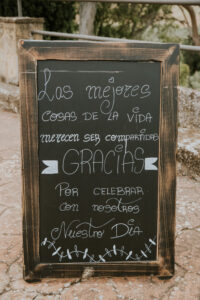 Las mejores
COSAS DE LA VIDA
MERECEN SER COMPARTIDAS
GRACIAS
POR CELEBRAR
CON NOSOTROS
NUESTRO DÍA